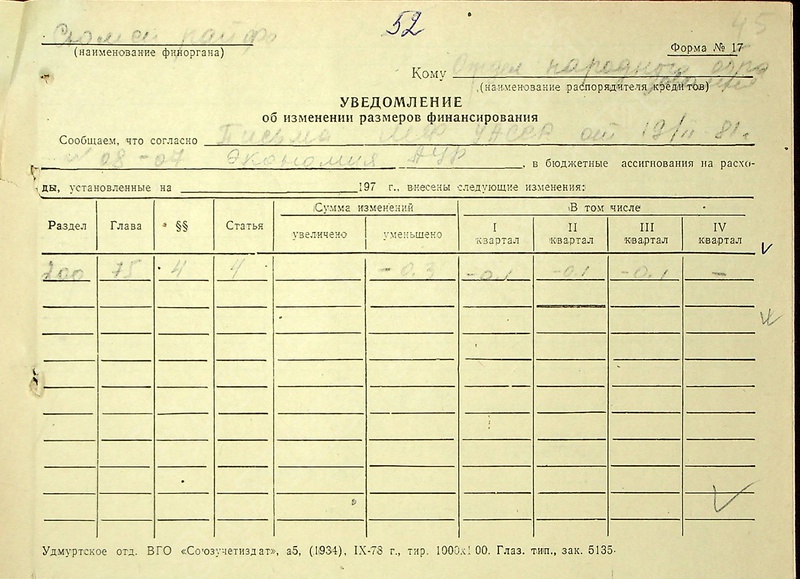 52
45
Сюмси райфо
(наименование финоргана)
Форма № 17
Кому Отдел народного обра
зования
(наименование распорядителя кредитов)
УВЕДОМЛЕНИЕ
об изменении размеров финансирования
Сообщаем, что согласно Письма УАССР от 19/II-81г.
№ 08-07 Экономия АУР, в бюджетные ассигнования на расхо-
ды, установленные на 197 г., внесены следующие изменения:
Раздел Глава §§ Статья Сумма изменений В том числе
увеличено уменьшено I квартал II квартал III квартал IV квартал
200 75 4 4 -0.3 -0.1 -0.1 -0.1 –
Удмуртское отд. ВГО «Союзучетиздат», а5, (1934), IX-78 г., тир. 1000х100. Глаз. тип., зак. 5135-